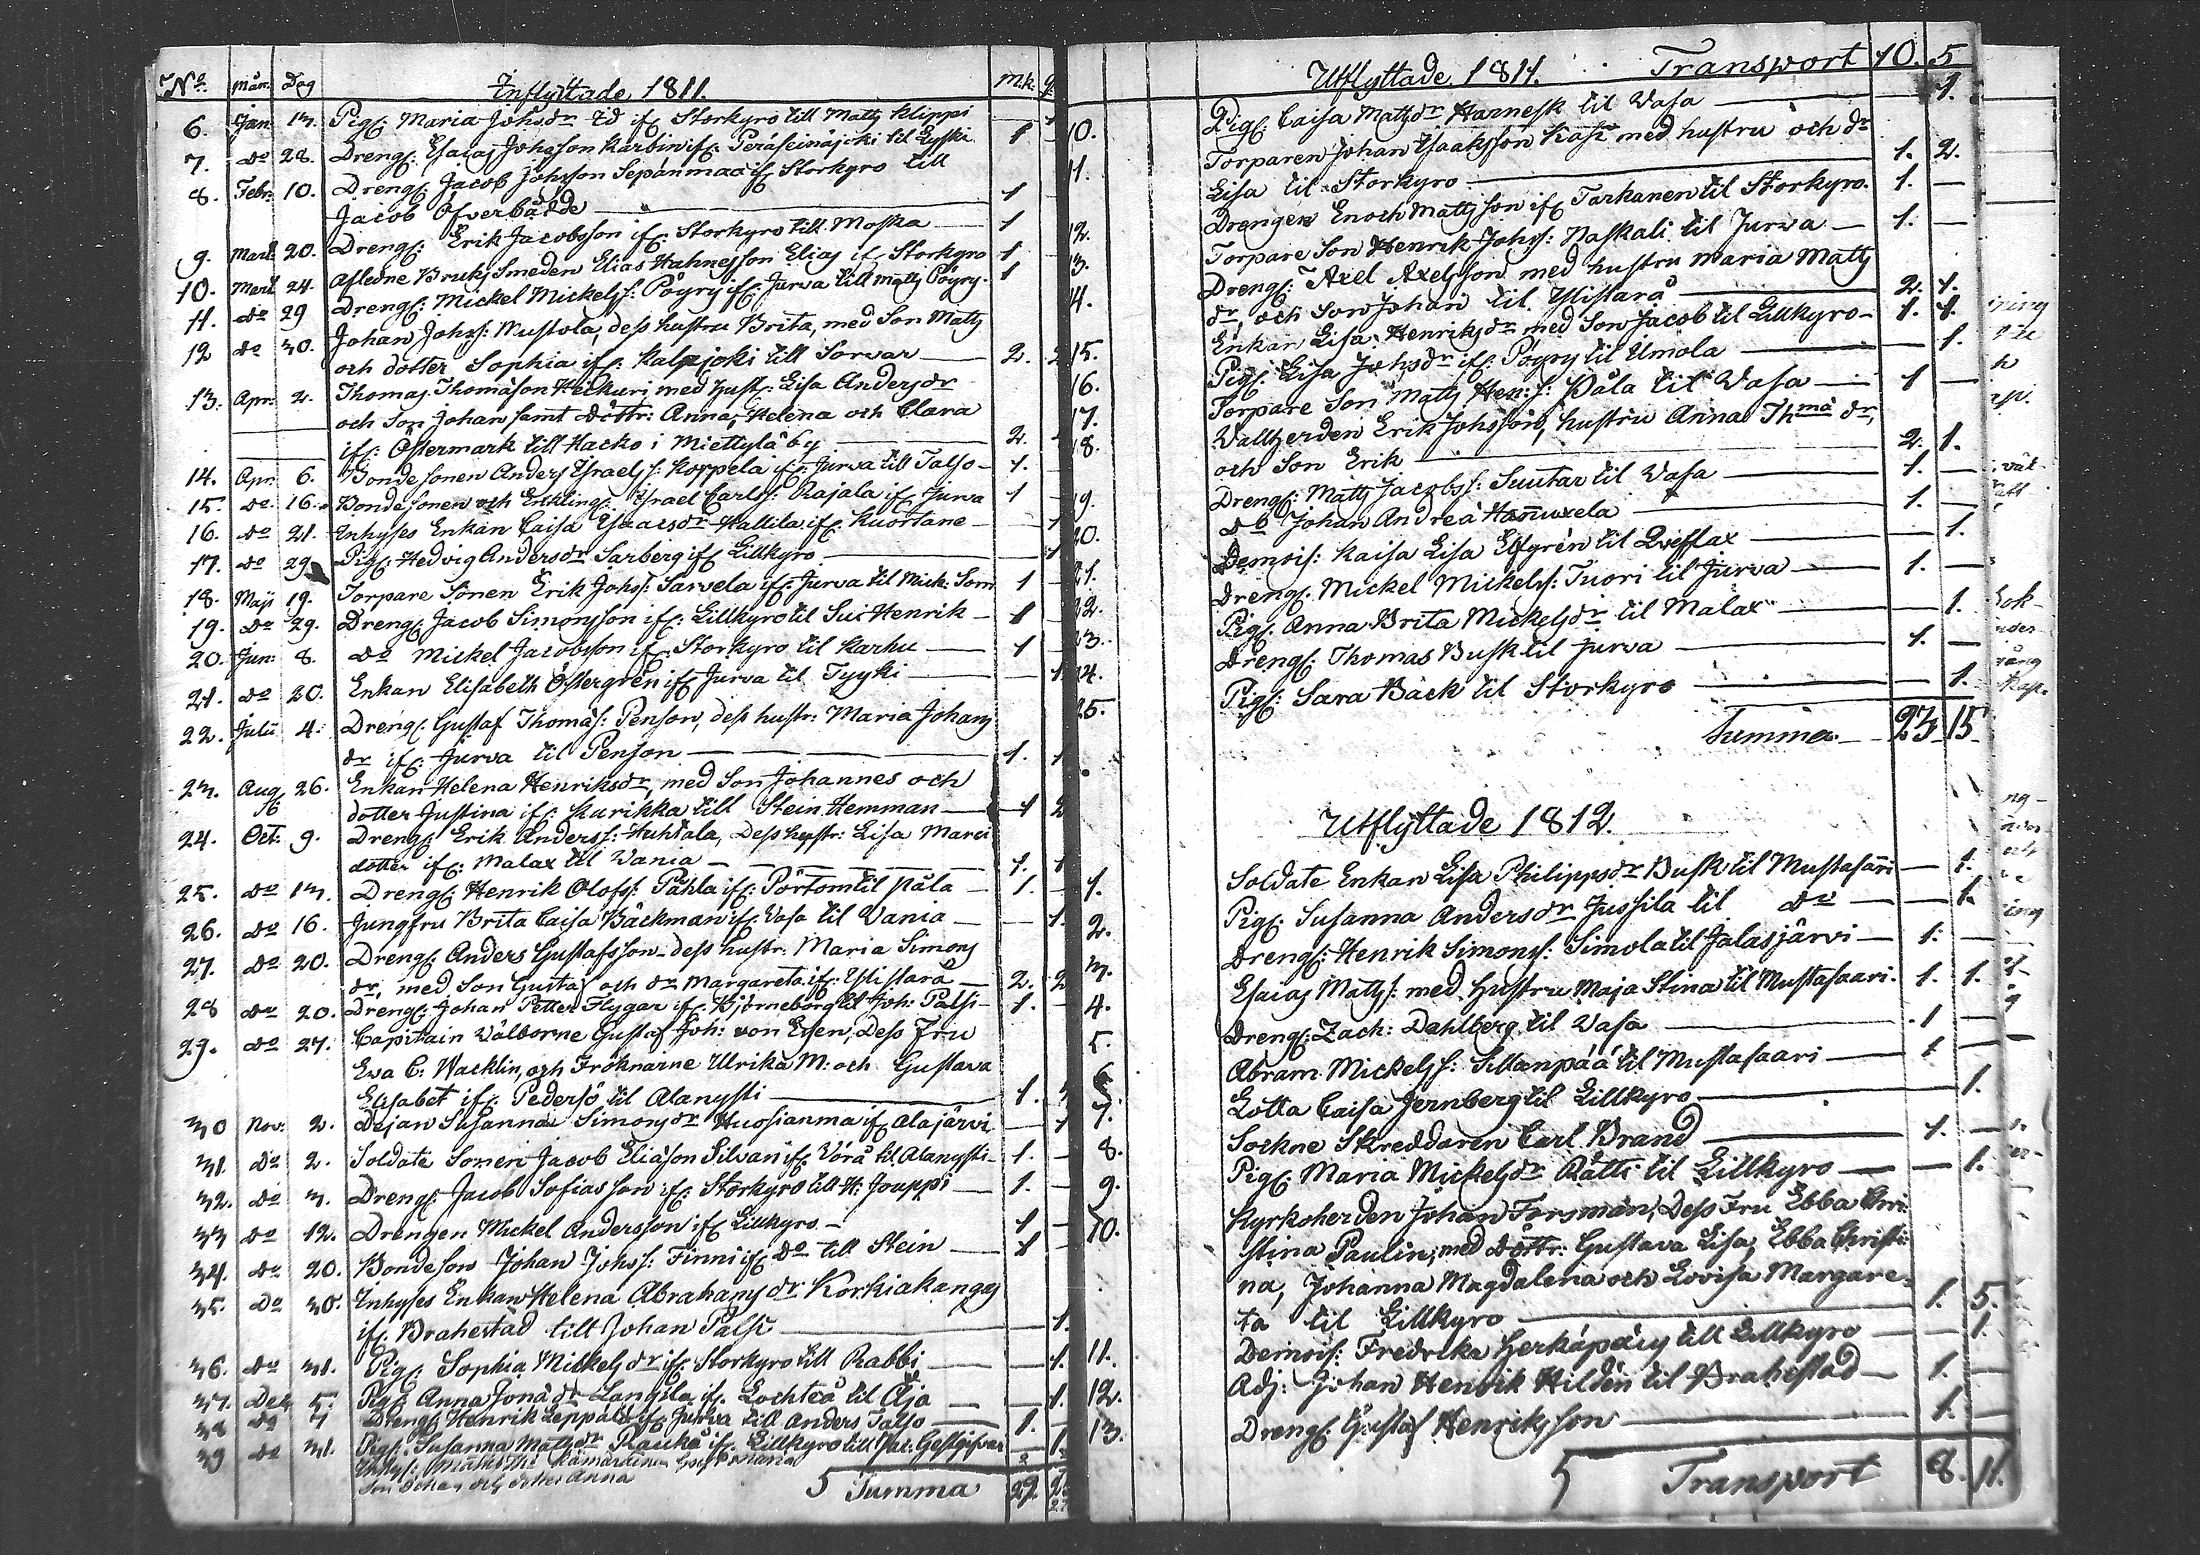 No. Mån. Dag Inflyttade 1811. M.k. q.
6. Jan. 13. Pig. Maria Johsdr ifr. Storkyro till Matts Klippi 1
7. do 28. Dreng. Esaias Johsson Karbin ifr. Peräseinäjoki til Lyski 1
8. Febr. 10. Dreng. Jacob Johsson Sepänmaa ifr Storkyro till
Jacob Öfverbädde 1
9. Mart. 20. Dreng. Erik Jacobsson ifr. Storkyro till Moska 1
10. Mart. 24. Afledne Bruks Smeden Elias Hahnesson Elias ifr Storkyro 1
11. do 29 Dreng. Mickel Mickelss: Pögry ifr. Jurva till Matts Pögry. 1
12 do 30. Johan Johss: Mustola, dess hustru Brita, med Son Matts
och dotter Sophia ifr. Kalajoki till Sorvar 2. 2
13. Apr. 2. Thomas Thomason Heikuri med hustr: Lisa Andersdr
och Son Johan samt döttr: Anna, Helena och Clara
ifr: Östermark till Hacko i Miettylä by 2.
14. Apr. 6. Bonde Sonen Anders Israelss: Koppela ifr. Jurva till Talso 1.
15. do. 16. Bonde Sonen och Enkling. Israel Carlss: Rajala ifr Jurva 1
16. do 21. Inhyses Enkan Caisa Esaacsdr Hallila ifr. Kuortane 1
17. do 29 Pig. Hedvig Andersdr Sarberg ifr Lillkyro 1
18. Maji 19. Torpare Sonen Erik Johss: Sarvela ifr. Jurva til Mick: Som 1
19. do 29. Dreng. Jacob Simonsson ifr: Lillkyro til Sui Henrik 1
20. Jun: 8. do Mickel Jacobsson ifr. Storkyro til Karhu 1
21. do 20. Enkan Elisabeth Östergren ifr Jurva til Tyyki 1
22. Julii 4. Dreng. Gustaf Thomas: Penson, dess hustr: Maria Johans
dr ifr: Jurva til Penson 1. 1
23. Aug. 26. Enkan Helena Henriksdr, med Son Johannes och
dotter Justina ifr: Kurikka till Stein Hemman 1 2
24. Oct: 9. Dreng. Erik Anderss: Huhtala, Dess hustr: Lisa Marci
dotter ifr: Malax til Vania 1. 1
25. do 13. Dreng. Henrik Olofss: Påhla ifr: Pörtom til Påla 1.
26. do 16. Jungfru Brita Caisa Bäckman ifr. Vasa til Vania 1.
27. do 20. Dreng. Anders Gustafsson dess hustr. Maria Simons
dr, med Son Gustaf och dr Margareta ifr: Ylistarå 2. 2
28 do 20. Dreng. Johan Petter Flygar ifr. Björneborg til Joh: Palsi 1.
29. do 27. Capitain Välborne Gustaf Joh: von Essen, Dess Fru
Eva C: Wacklin, och Fröknarne Ulrika M: och Gustava
Elisabet ifr: Pedersö til Alanysti 1. 3
30 Nov: 2. Dejan Susanna Simonsdr Huosianma ifr Alajärvi 1
31. Do 2. Soldate Sonen Jacob Eliason Silvan ifr Vörå til Alanysti 1.
32. Do 3. Dreng. Jacob Sofiasson ifr. Storkyro till H. Jouppi 1.
33 do 12. Drengen Mickel Andersson ifr Lillkyro 1
34. do 20. Bondeson Johan Johss: Finni ifr Do till Stein 1
35. Do 30. Inhyses Enkan Helena Abrahamsdr Korkiakangas
ifr. Brahestad till Johan Palsi 1.
36. do 31. Pig. Sophia Mickelsdr ifr. Storkyro till Rabbi 1.
37. Dec 5. Pig. Anna Jonædr Langila ifr. Lochteå til Äja 1
38 do 7 Dreng. Henrik Leppälä ifr. Jurva till Anders Talso 1.
39 do 31. Pig. Susanna Mattsdr Rauka ifr. Lillkyro till Gestgifvar 1
Son Johan och dotter Anna
Summa 29.
Utflyttade 1811. Transport 10. 5
10. Pig. Caisa Mattsdr Harnesk til Vasa 1.
11. Torparen Johan Isaaksson Kask med hustru och dr
Lisa til Storkyro 1. 2.
12. Drengen Enoch Mattsson ifr Tarkanen til Storkyro. 1.
13. Torpare Son Henrik Johss: Naskali til Jurva 1.
14. Dreng. Axel Axelsson med hustru Maria Matts
dr, och Son Johan til Ylistarå 2. 1.
15. Enkan Lisa Henriksdr med Son Jacob til Lillkyro 1. 1.
16. Pig. Lisa Johsdr ifr: Pögry til Umola 1.
17. Torpare Son Matts Hen:s: Påla til Vasa 1
18. Vallherden Erik Johsson, hustru Anna Thmædr,
och Son Erik 2. 1.
19. Dreng. Matts Jacobss: Suutar til Vasa 1.
20. do Johan Andreæ Hannuxela 1.
Demois: Kaisa Lisa Elfgrén til Qveflax 1.
21. Dreng. Mickel Mickelss: Tuori til Jurva 1.
22. Pig. Anna Brita Mickelsdr til Malax 1.
23. Dreng. Thomas Busk til Jurva 1.
24. Pig. Sara Bäck til Storkyro 1.
25. Summa 23 15
Utflyttade 1812.
1. Soldate Enkan Lisa Philippsdr Busk til Mustasari 1.
2. Pig. Susanna Andersdr Jussila til do 1.
3. Dreng. Henrik Simonss: Simola til Jalasjärvi 1.
4. Esaias Matts: med Hustru Maja Stina til Mustasaari. 1. 1.
5. Dreng. Zach: Dahlberg til Vasa 1
6 Abram Mickelss: Sillanpää til Mustasaari 1
7. Lotta Caisa Jernberg til Lillkyro 1.
8. Sockne Skreddaren Carl Brand 1.
9. Pig. Maria Mickelsdr Rätti til Lillkyro 1.
10. Kyrkoherden Johan Forsman, Dess Fru Ebba Chri
stina Paulin, med döttr: Gustava Lisa, Ebba Christi
na, Johanna Magdalena och Lovisa Margare
ta til Lillkyro 1. 5.
11. Demois: Fredrika Herkäpæus till Lillkyro 1.
12. Adj: Johan Henrik Hildén til Brahestad 1.
13. Dreng. Gustaf Henriksson 1.
Transport 8. 11.